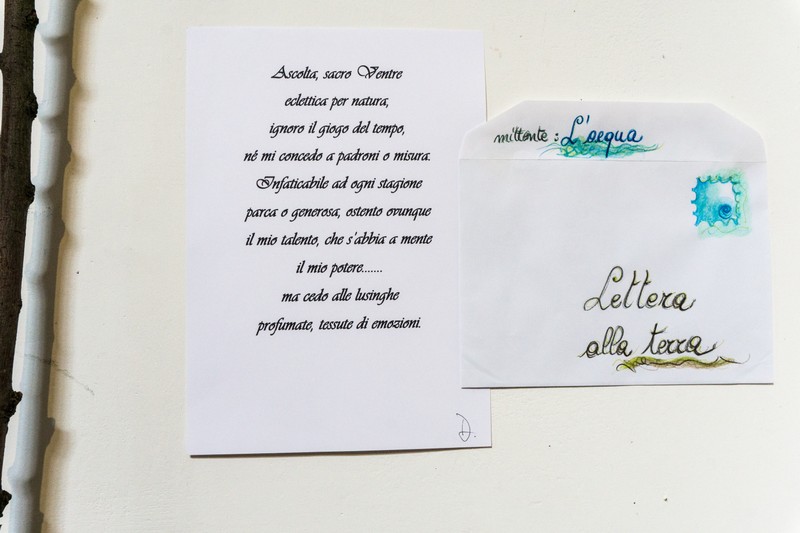 Ascolta, sacro Ventre
eclettica per natura,
ignoro il giogo del tempo,
né mi concedo a padroni o misura.
Infaticabile ad ogni stagione
parca o generosa, ostento ovunque
il mio talento, che s'abbia a mente
il mio potere.......
ma cedo alle lusinghe
profumate, tessute di emozioni.
D.
mittente : L'acqua
Lettera
alla terra